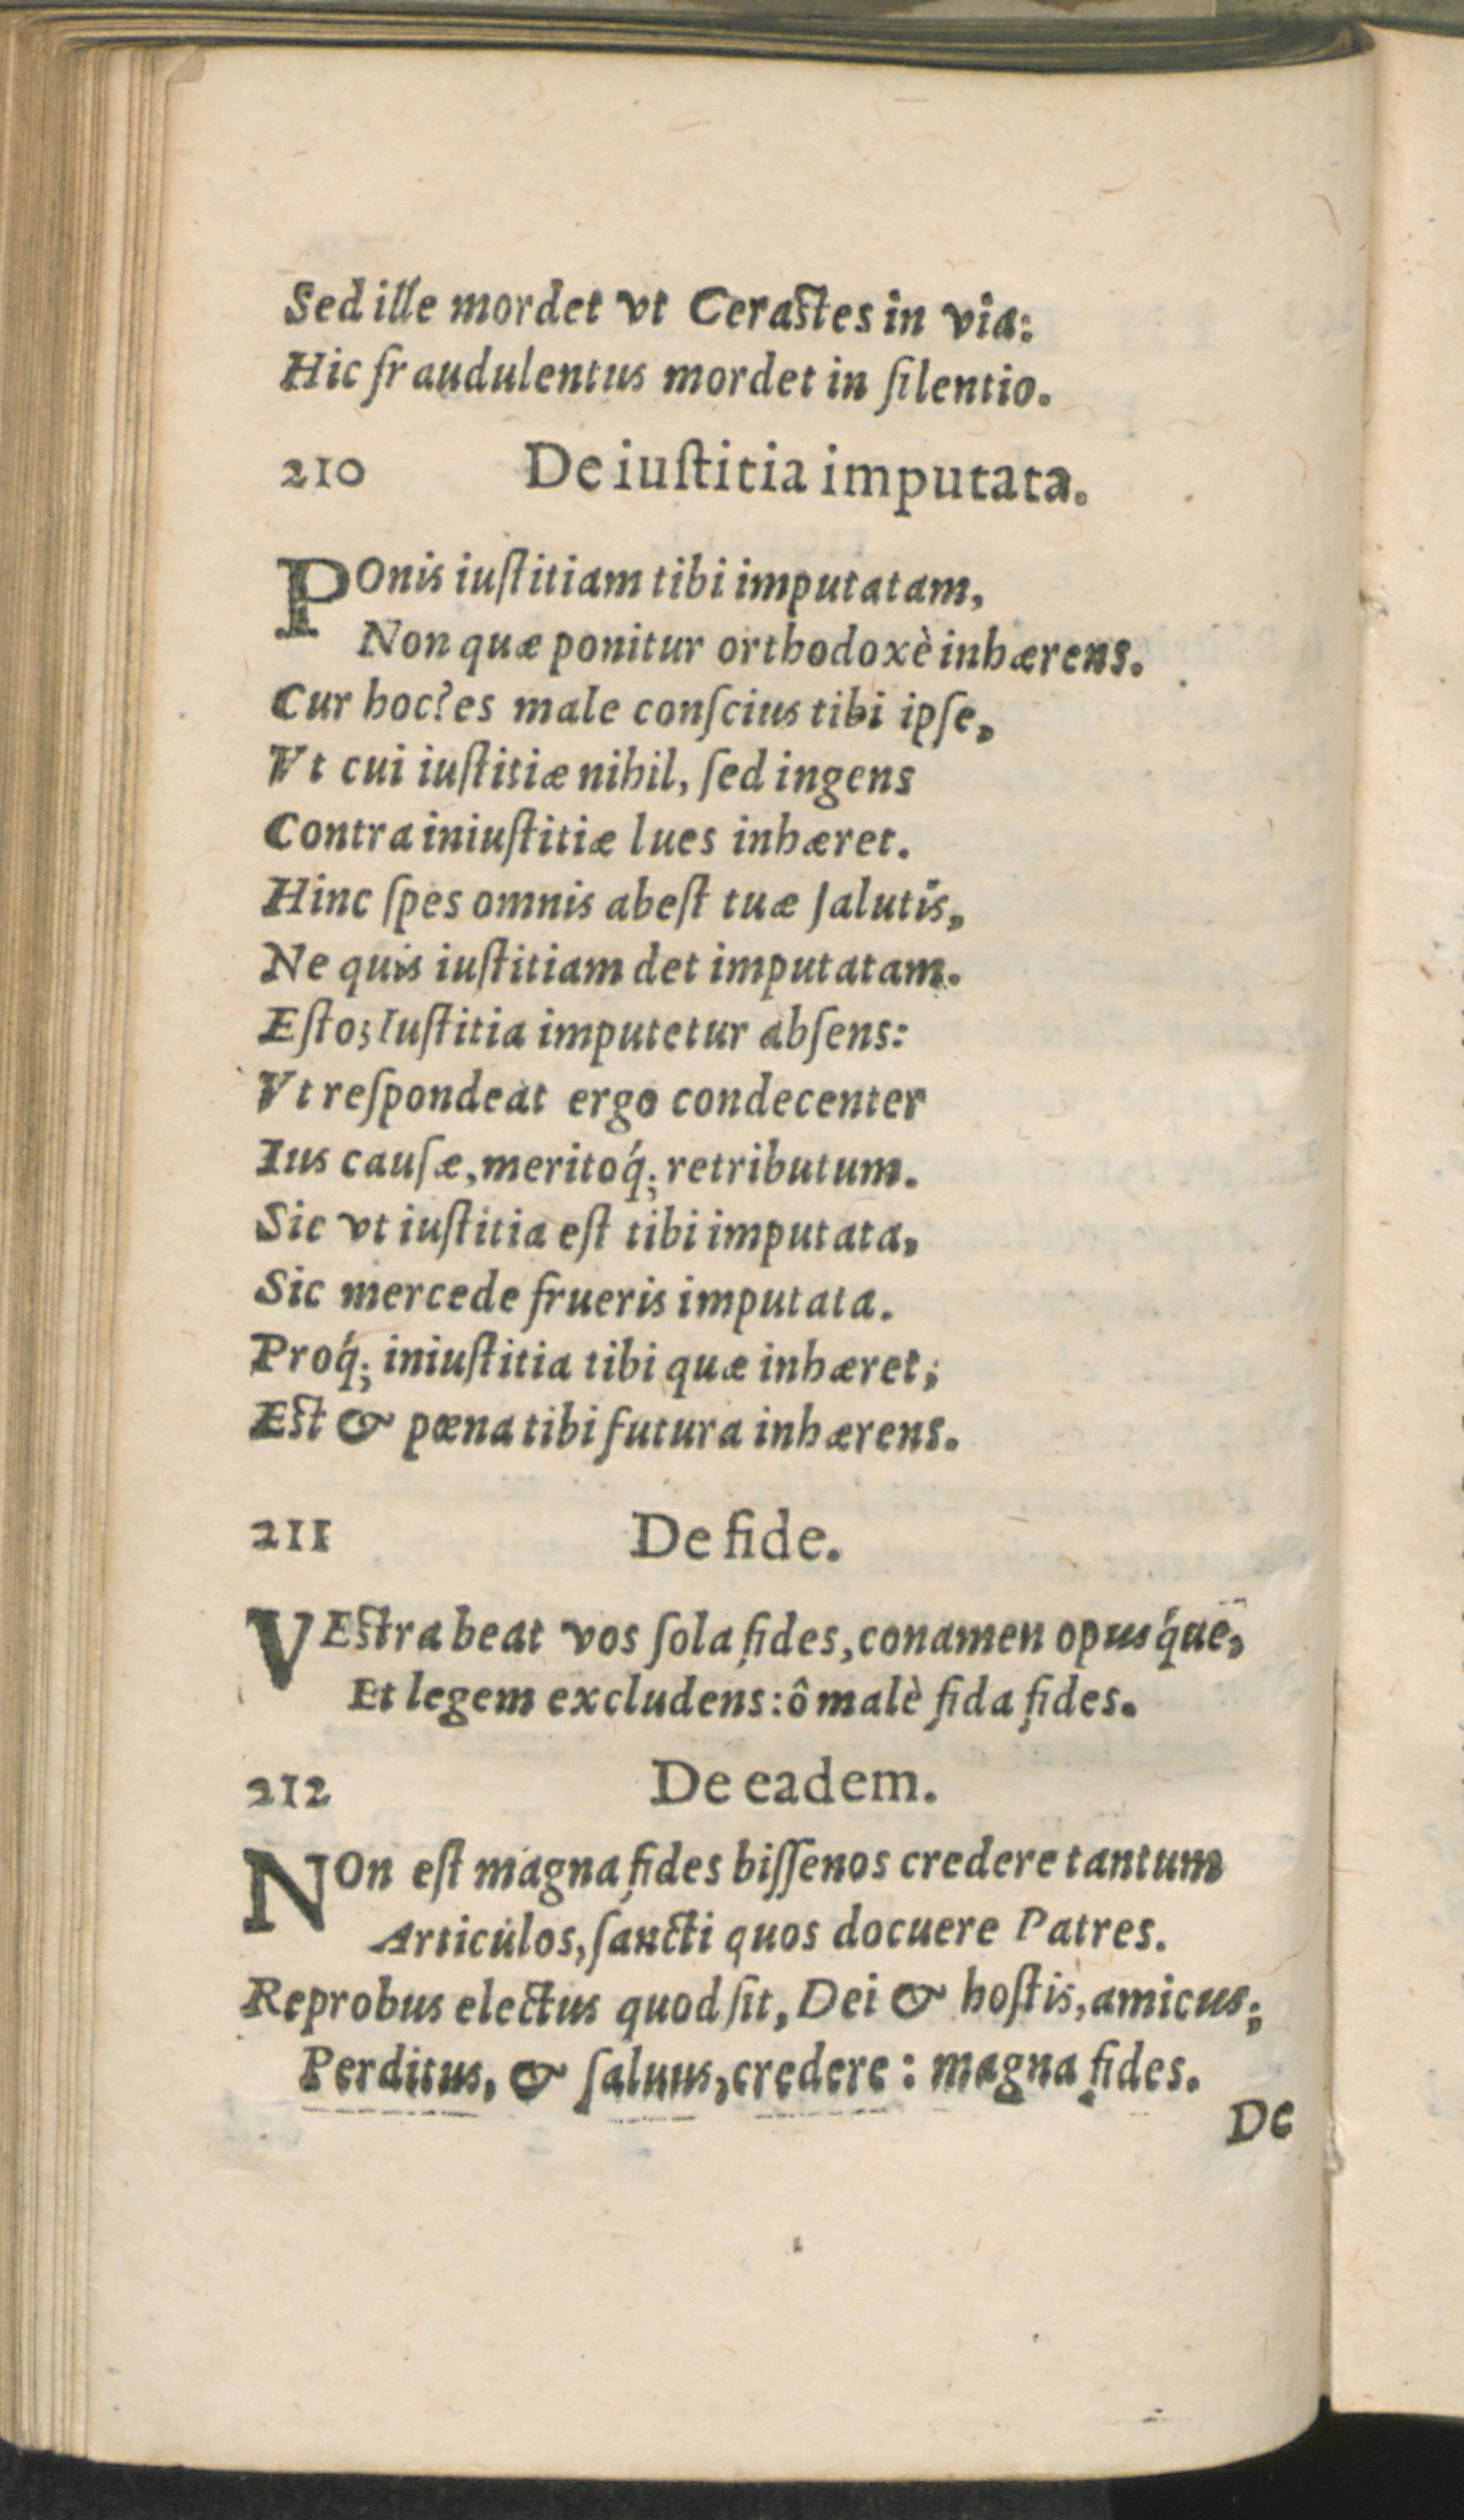 Sed ille mordet vt Cerastes in via:
Hic fraudulentus mordet in ſilentio.
210 De iuſtitia imputata.
POnis iuſtitiam tibi imputatam,
Non quæ ponitur orthodoxè inhærens.
Cur hoc? es male conſcius tibi ipſe,
Vt cui iuſtitiæ nihil, ſed ingens
Contra iniuſtitiæ lues inhæret.
Hinc ſpes omnis abeſt tuæ ſalutis,
Ne quis iuſtitiam det imputatam.
Eſto; Iuſtitia imputetur abſens:
Vt reſpondeat ergo condecenter
Ius cauſæ, meritoq́; retributum.
Sic vt iuſtitia eſt tibi imputata,
Sic mercede frueris imputata.
Proq́; iniuſtitia tibi quæ inhæret;
Est & pœna tibi futura inhærens.
211 De fide.
VEstra beat vos ſola fides, conamen opusq́ue,
Et legem excludens: ô malè fida fides.
212 De eadem.
NOn eſt magna fides biſſenos credere tantum
Articulos, ſancti quos docuere Patres.
Reprobus electus quod ſit, Dei & hoſtis, amicus;
Perditus, & ſaluus, credere: magna fides.
De